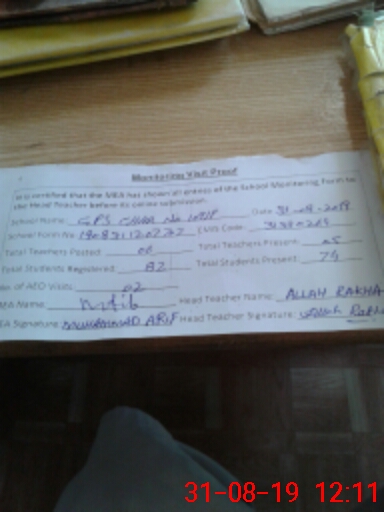 Monitoring Visit Proof
It is certified that the MEA has shown all entries of the School Monitoring Form to
the Head Teacher before its online submission.
School Name: GPS CHAK No Date 31-08-2019
School Form No: EMIS Code:
Total Teachers Posted: 06 Total Teachers Present: 05
Total Students Registered: 82 Total Students Present: 74
No. of AEO Visits: 02
MEA Name: Head Teacher Name: ALLAH RAKHA
MEA Signature: MUHAMMAD ARIF Head Teacher Signature:
31-08-19 12:11